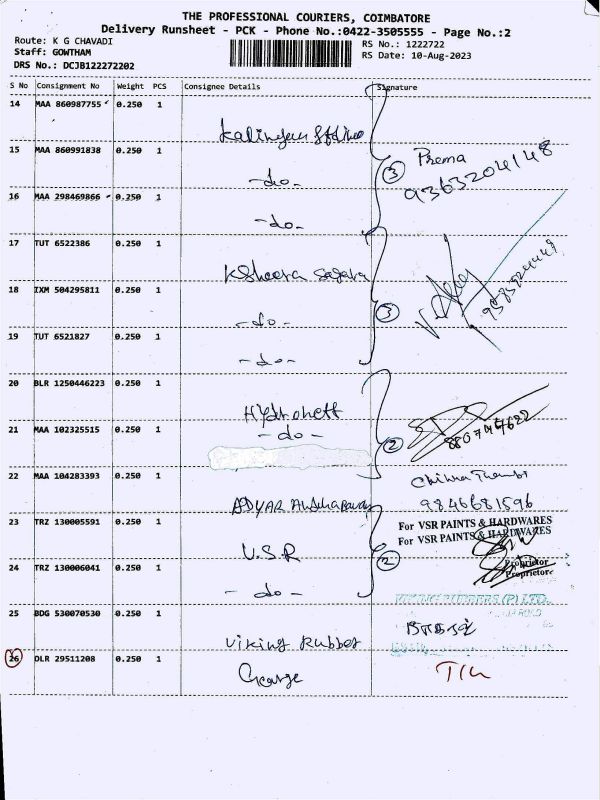 THE PROFESSIONAL COURIERS, COIMBATORE
Delivery Runsheet - PCK - Phone No.:0422-3505555 - Page No.:2
Route: K G CHAVADI
Staff: GOWTHAM
DRS No.: DCJB122272202
RS No.: 1222722
RS Date: 10-Aug-2023
S No Consignment No Weight PCS Consignee Details Signature
14 MAA 860987755 0.250 1
15 MAA 860991838 0.250 1
-do-
Prema
9363204148
3
16 MAA 298469866 0.250 1
-do-
17 TUT 6522386 0.250 1
Ksheera Sagara
18 IXM 504295811 0.250 1
-do-
3
19 TUT 6521827 0.250 1
-do-
20 BLR 1250446223 0.250 1
21 MAA 102325515 0.250 1
-do-
2
22 MAA 104283393 0.250 1
ADYAR
9846681596
23 TRZ 130005591 0.250 1
For VSR PAINTS & HARDWARES
For VSR PAINTS & HARDWARES
V.S.R
2
Proprietor
Proprietor
24 TRZ 130006041 0.250 1
-do-
VIKING RUBBERS (P) LTD.
25 BDG 530070530 0.250 1
Viking Rubber
26 DLR 29511208 0.250 1
George